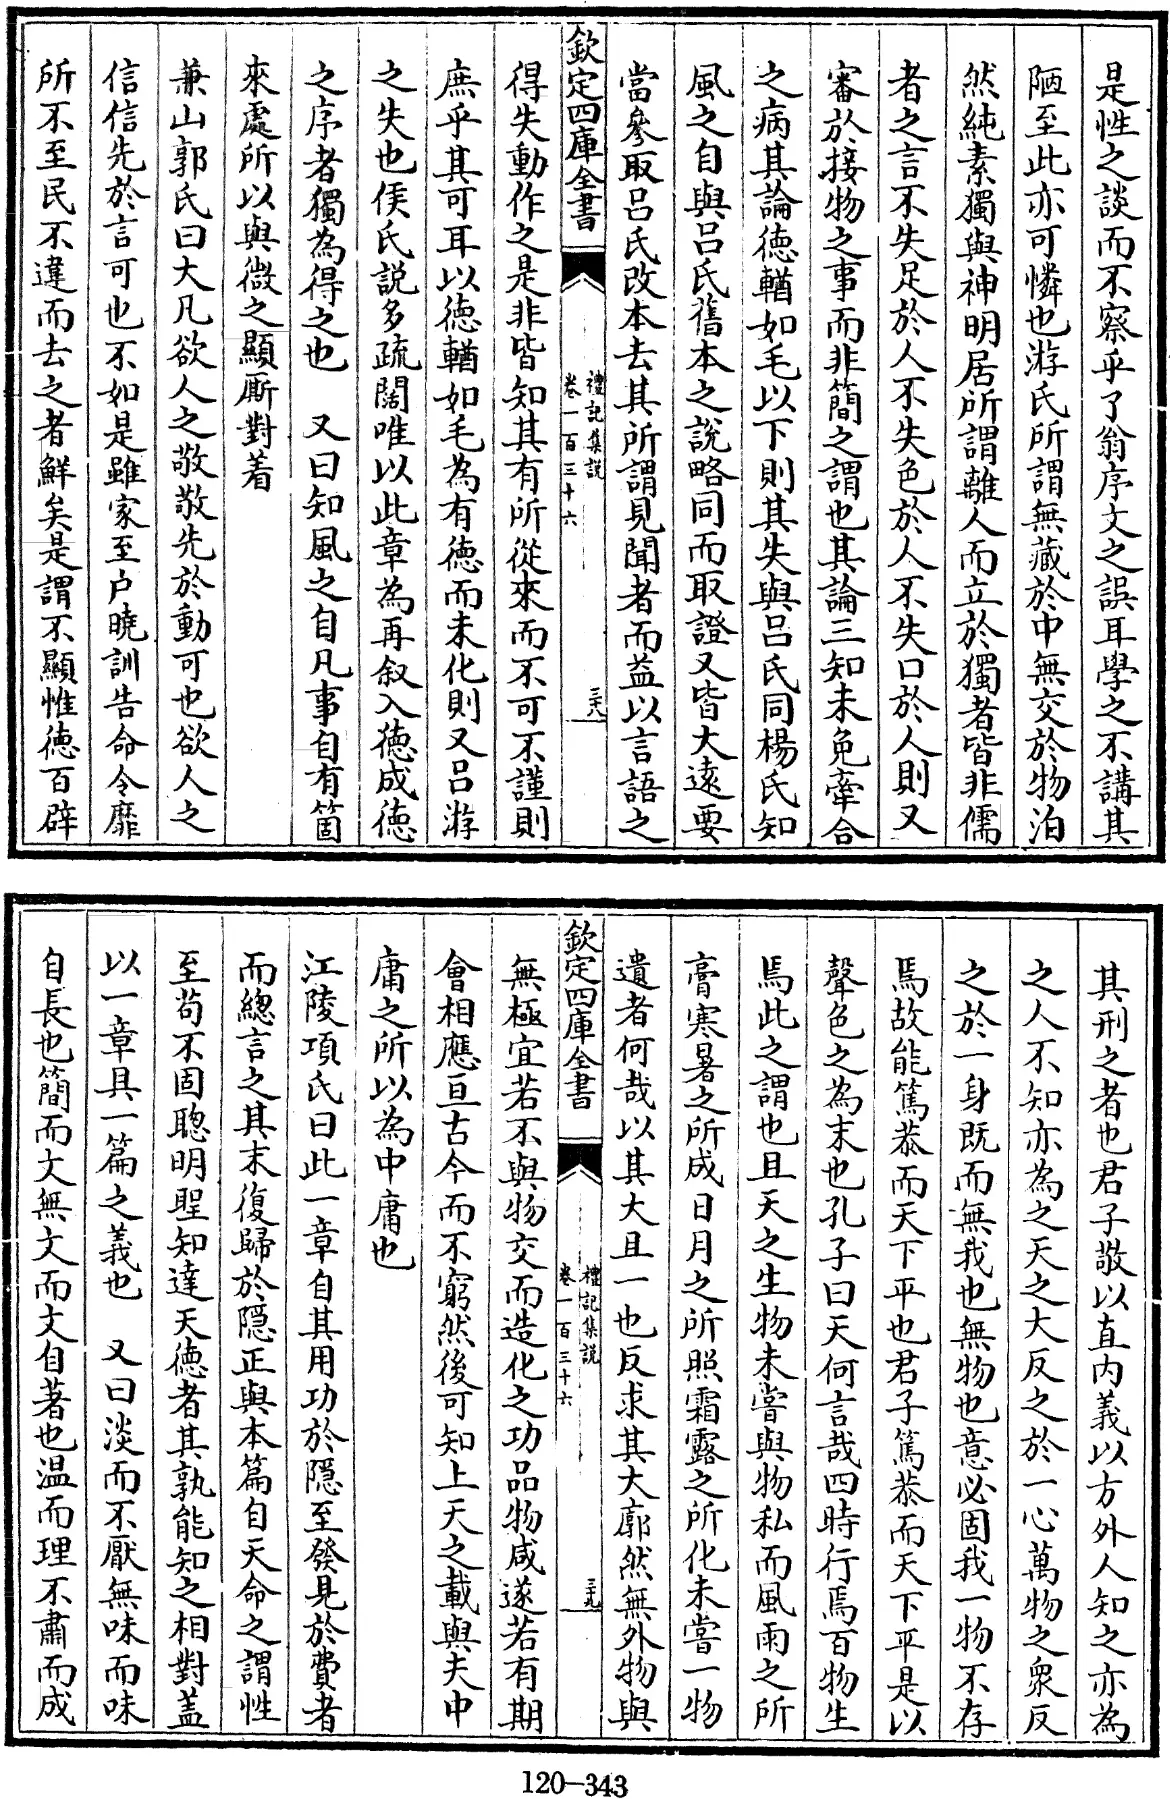 是性之談而不察乎了翁序文之誤耳學之不講其
陋至此亦可憐也游氏所謂無藏於中無交於物泊
然純素獨與神明居所謂離人而立於獨者皆非儒
者之言不失足於人不失色於人不失口於人則又
審於接物之事而非簡之謂也其論三知未免牽合
之病其論徳輶如毛以下則其失與呂氏同楊氏知
風之自與呂氏舊本之說略同而取證又皆大遠要
當參取呂氏改本去其所謂見聞者而益以言語之
欽定四庫全書
禮記集說
卷一百三十六
三十八
得失動作之是非皆知其有所從來而不可不謹則
庶乎其可耳以徳輶如毛為有徳而未化則又呂游
之失也侯氏説多疏闊唯以此章為再叙入徳成徳
之序者獨為得之也　又曰知風之自凡事自有箇
來處所以與微之顯厮對着
兼山郭氏曰大凡欲人之敬敬先於動可也欲人之
信信先於言可也不如是雖家至户曉訓告命令靡
所不至民不違而去之者鮮矣是謂不顯惟徳百辟
其刑之者也君子敬以直内義以方外人知之亦為
之人不知亦為之天之大反之於一心萬物之衆反
之於一身既而無我也無物也意必固我一物不存
焉故能篤恭而天下平也君子篤恭而天下平是以
聲色之為末也孔子曰天何言哉四時行焉百物生
焉此之謂也且天之生物未嘗與物私而風雨之所
膏寒暑之所成日月之所照霜露之所化未嘗一物
遺者何哉以其大且一也反求其大廓然無外物與
欽定四庫全書
禮記集說
卷一百三十六
三十九
無極宜若不與物交而造化之功品物咸遂若有期
會相應亘古今而不窮然後可知上天之載與夫中
庸之所以為中庸也
江陵項氏曰此一章自其用功於隠至發見於費者
而總言之其末復歸於隠正與本篇自天命之謂性
至苟不固聰明聖知達天徳者其孰能知之相對盖
以一章具一篇之義也　又曰淡而不厭無味而味
自長也簡而文無文而文自著也温而理不肅而成
120—343